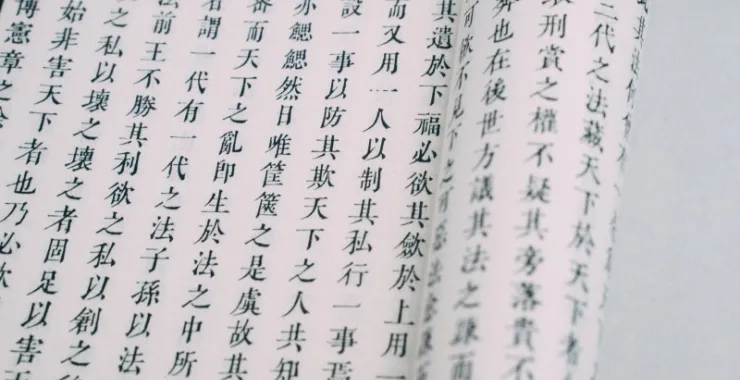 三代之法藏天下於天下者
刑賞之權不疑其旁落貴不
也在後世方議其法之疎而
可欲不見下之可惡法愈
其遺於下福必欲其斂於上用一
而又用一人以制其私行一事焉
設一事以防其欺天下之人共知
亦鰓鰓然日唯筐篋之是虞故其
密而天下之亂卽生於法之中所
者謂一代有一代之法子孫以法
法前王不勝其利欲之私以創之後
之私以壞之壞之者固足以害天
始非害天下者也乃必欲
博憲章之餘